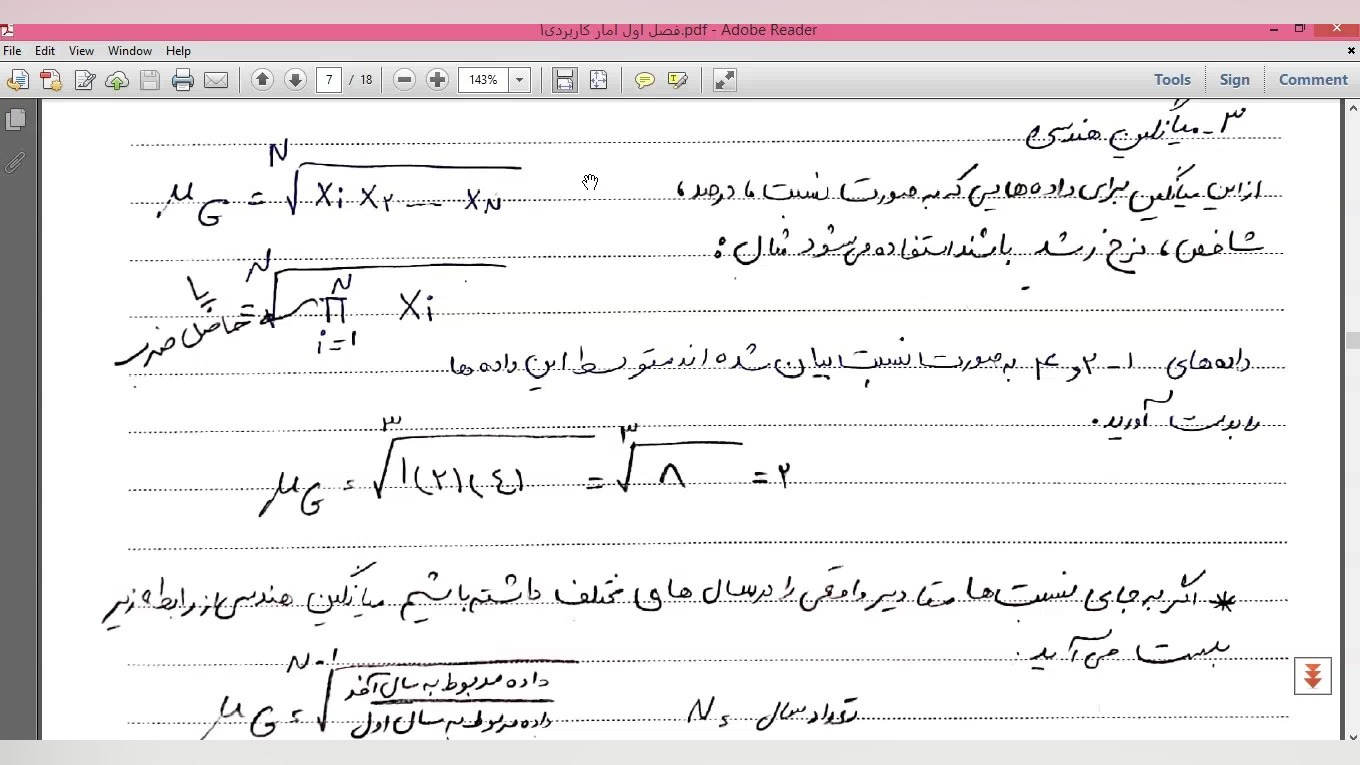 فصل اول امار کاربردی۱.pdf - Adobe Reader
File Edit View Window Help
7 / 18 143% Tools Sign Comment
۳- میانگین هندسی
از این میانگین برای داده هایی که به صورت نسبت ، درصد ،
شاخص ، نرخ رشد باشند استفاده می شود مثال :
μG = N√(Xi X۲ --- XN)
یا = N√(N∏i=1 Xi)
حاصل ضرب
داده های ۱ - ۲ و ۴ به صورت نسبت بیان شده اند متوسط این داده ها
را بدست آورید .
μG = ۳√(۱(۲)(٤)) = ۳√۸ = ۲
* اگر به جای نسبت ها مقادیر واقعی را در سال های مختلف داشته باشیم میانگین هندسی از رابطه زیر
بدست می آید .
μG = N-1√(داده مربوط به سال آخر / داده مربوط به سال اول) N = تعداد سال